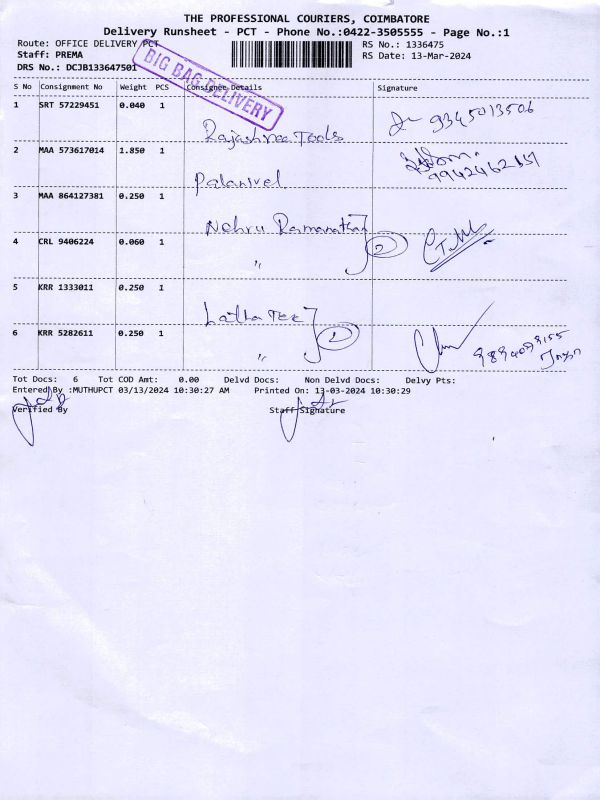 THE PROFESSIONAL COURIERS, COIMBATORE
Delivery Runsheet - PCT - Phone No.:0422-3505555 - Page No.:1
Route: OFFICE DELIVERY PCT
RS No.: 1336475
Staff: PREMA
RS Date: 13-Mar-2024
DRS No.: DCJB133647501
BIG BAG DELIVERY
S No Consignment No Weight PCS Consignee Details Signature
1 SRT 57229451 0.040 1
9345013506
Rajashree Tools
2 MAA 573617014 1.850 1
Palanivel
3 MAA 864127381 0.250 1
Nehru Ramanathan
4 CRL 9406224 0.060 1
2
"
5 KRR 1333011 0.250 1
Laitha Tex
6 KRR 5282611 0.250 1
2
"
Tot Docs: 6 Tot COD Amt: 0.00 Delvd Docs: Non Delvd Docs: Delvy Pts:
Entered By :MUTHUPCT 03/13/2024 10:30:27 AM Printed On: 13-03-2024 10:30:29
Verified By Staff Signature